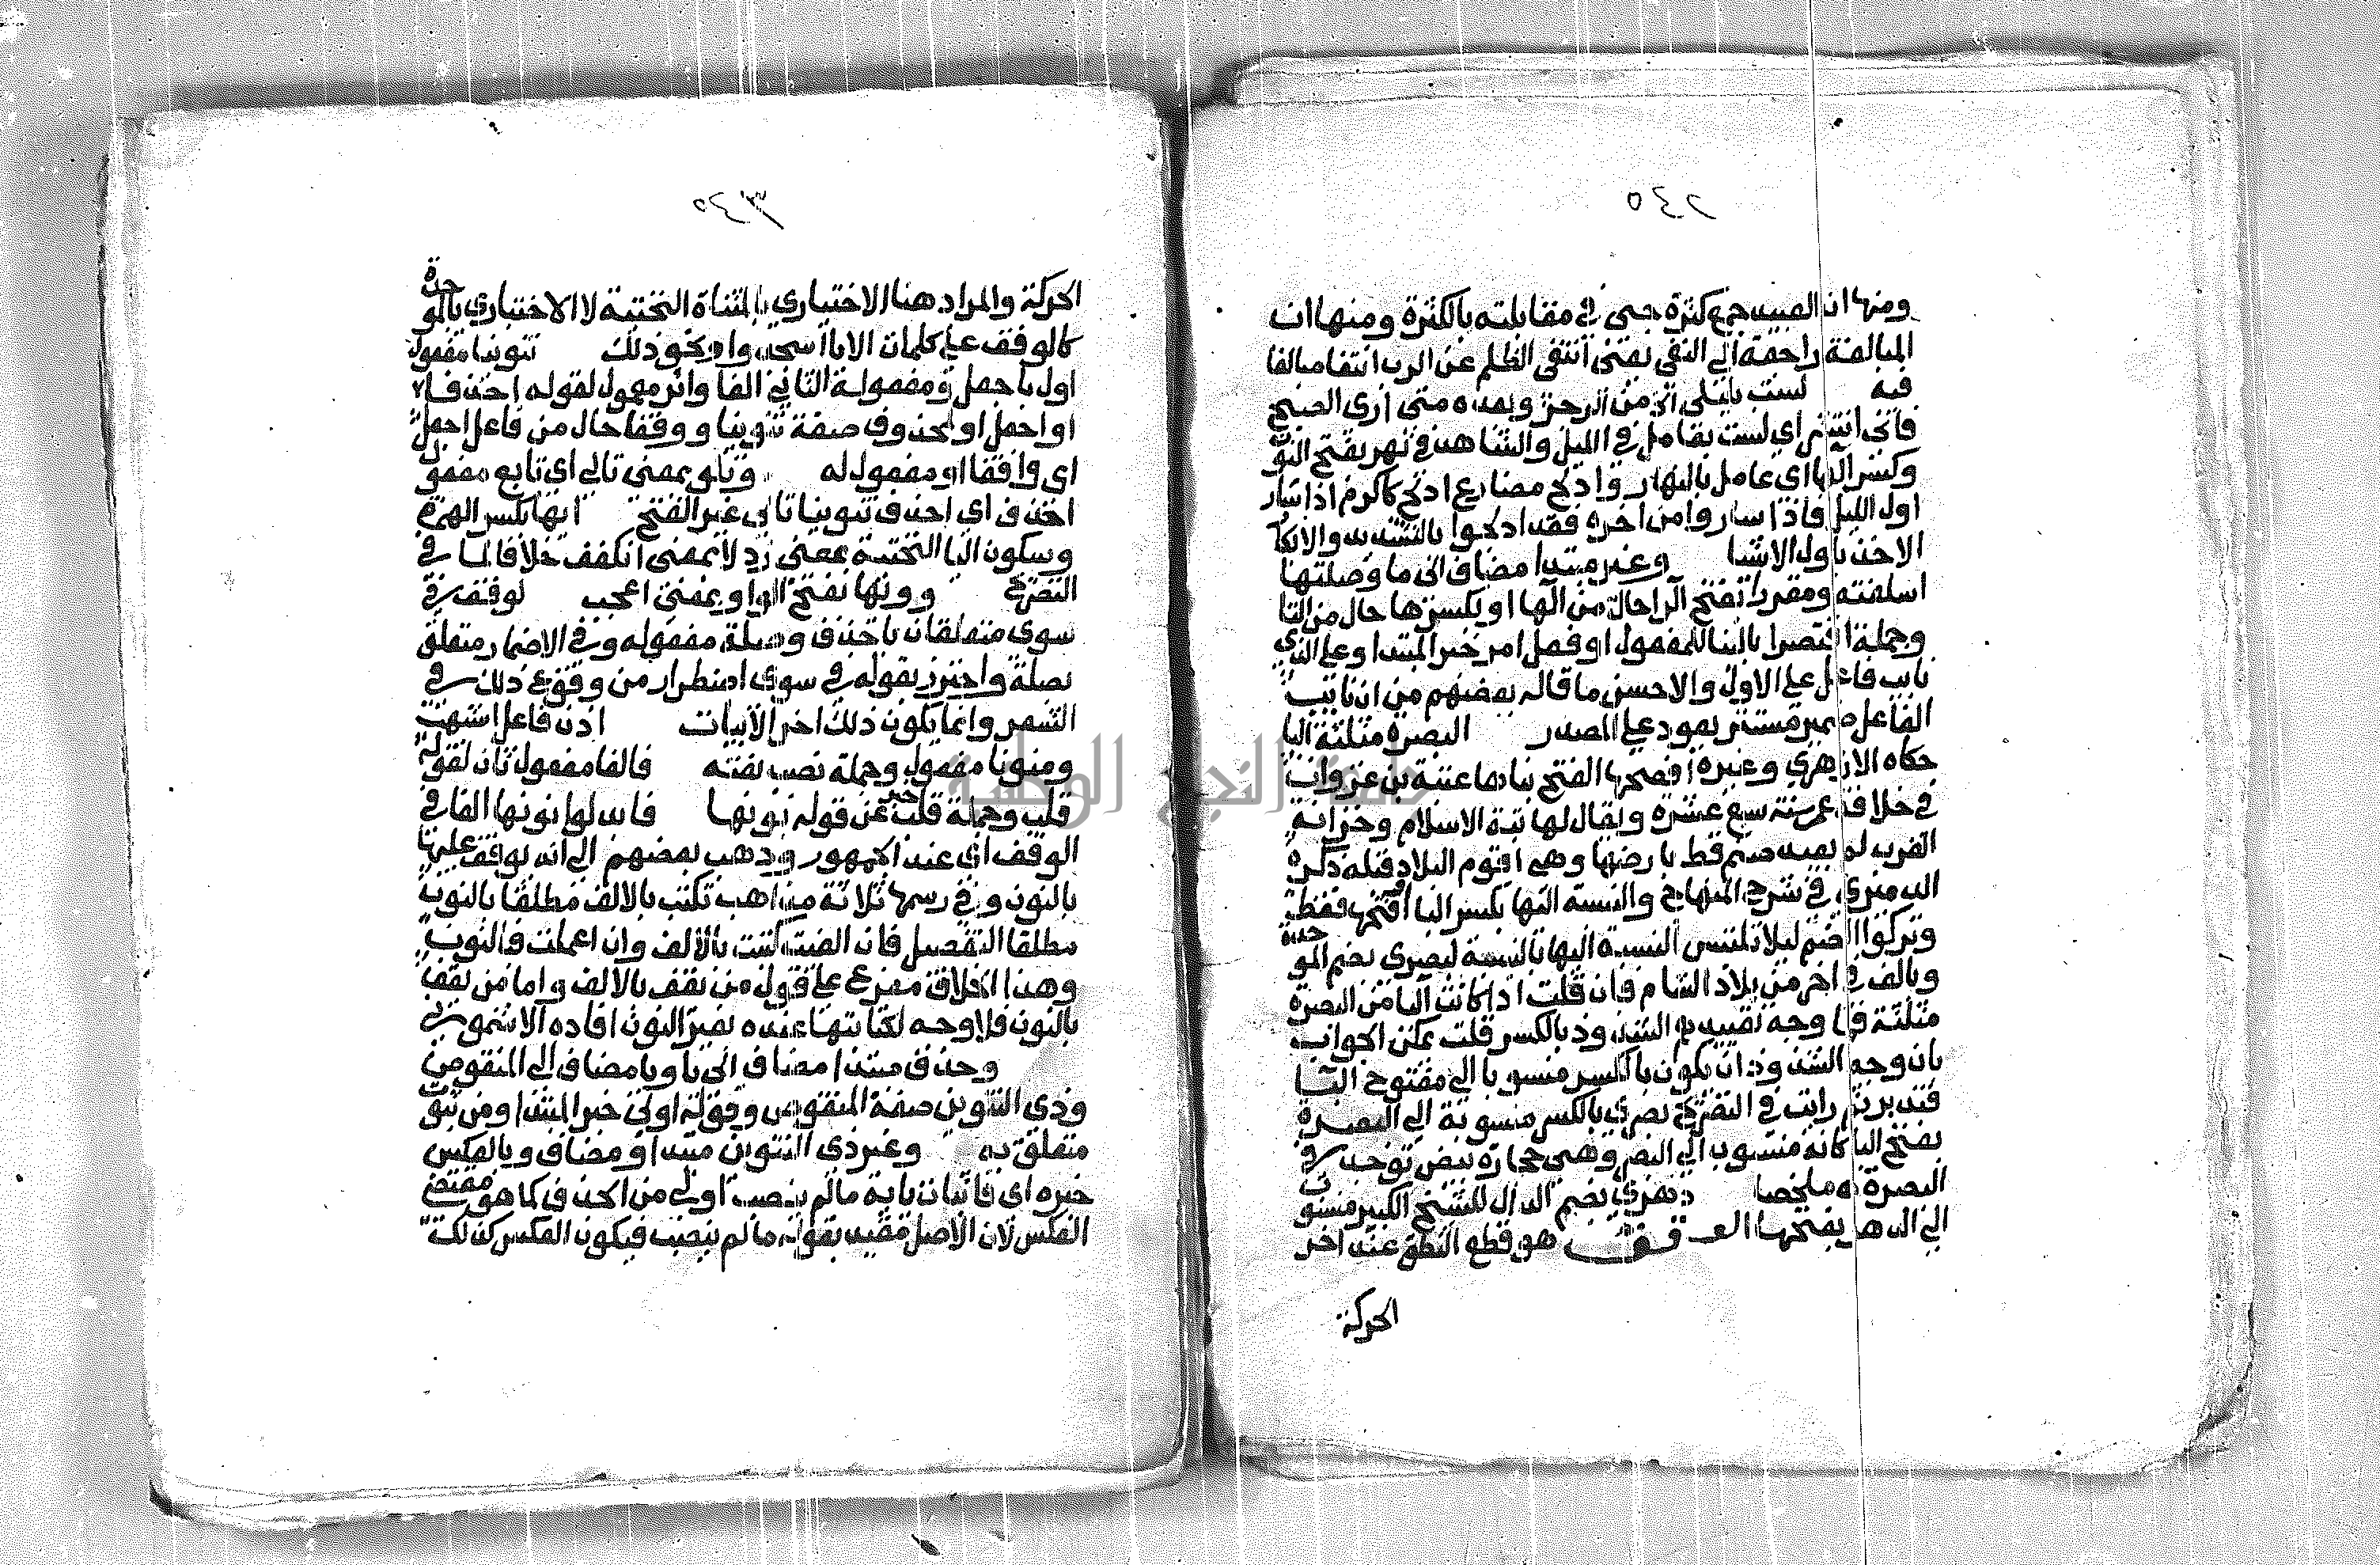 ٢٤٥
ومنها ان العبيد جمع كثرة جئ في مقابلته بالكثرة ومنها ان
المبالغة راجعة الى النفي بمعنى انتفى الظلم عن الرب انتفا مبالغا
فيه لست بليلي الخ من الرجز وبعده متى ارى الصبح
فاني انتشر اي لست بعامل في الليل والشاهد في نهر بفتح النون
وكسر الها اي عامل بالنهار وادلج مضارع ادلج كاكرم اذا سار
اول الليل فاذا ساروا من اخره فقد ادلجوا بالتشديد والابتكار
الاخذ باول الاشيا وغير مبتدا مضاف الى ما وصلتها
اسلفته ومقررا بفتح الرا حال من الها او بكسرها حال من التا
وجملة اقتصرا بالبنا للمفعول او فعل امر خبر المبتدا وعلى الذي
نايب فاعل على الاول والاحسن ما قاله بعضهم من ان نايب
الفاعل ضمير مستتر يعود على المصدر البصرة مثلثة البا
حكاه الازهري وغيره افصحها الفتح بناها عتبة بن غزوان
في خلافة عمر سنة سبع عشرة ويقال لها قبة الاسلام وخزانة
العرب لم يعبد صنم قط بارضها وهي اقوم البلاد قبلة ذكره
الدميري في شرح المنهاج والنسبة اليها بكسر البا او فتحها فقط
وتركوا الضم ليلا تلتبس النسبة اليها بالنسبة لبصرى بضم الموحدة
وبالف في اخر من بلاد الشام فان قلت اذا كانت البا من البصرة
مثلثة فما وجه تقييدهم الشذوذ بالكسر قلت يمكن الجواب
بان وجه الشذوذ ان يكون بالكسر منسوبا الى مفتوح البا
فتدبر ثم رايت في التصريح بصري بالكسر منسوبة الى البصرة
بفتح البا كانه منسوب الى البصر وهي حجارة بيض توجد في
البصرة اه ملخصا دهري بضم الدال للشيخ الكبير منسوب
الى الدهر بفتحها الوقف هو قطع النطق عند اخر
الحركة
٢٤٦
الحركة والمراد هنا الاختياري بالمثناة التحتية لا الاختباري بالموحدة
كالوقف على كلمات الا يا اسجدوا ونحو ذلك تنوينا مفعول
اول باجعل ومفعوله الثاني الفا واثر معمول لقوله احذفا
او اجعل او لمحذوف صفة تنوينا ووقفا حال من فاعل اجعل
اي واقفا او مفعول له وتلو بمعنى تالي اي تابع مفعول
احذف اي احذف تنوينا تالي غير الفتح ايها بكسر الهمزة
وسكون اليا التحتية بمعنى زد لا بمعنى انكفف خلافا لما في
التصريح وويها بفتح الواو بمعنى اعجب لوقف في
سوى متعلقان باحذف وصلة مفعوله وفي الاضمار متعلق
بصلة واحترز بقوله في سوى اضطرار من وقوع ذلك في
الشعر وانما يكون ذلك اخر الابيات اذن فاعل اشبهت
ومنونا مفعول وجملة نصب نعته فالفا مفعول ثان لقوله
قلب وجملة قلب خبر عن قوله نونها فابدلوا نونها الفا في
الوقف اي عند الجمهور وذهب بعضهم الى انه يوقف عليها
بالنون وفي رسمها ثلاثة مذاهب تكتب بالالف مطلقا بالنون
مطلقا التفصيل فان الغيت كتبت بالالف وان اعملت فبالنون
وهذا الخلاف مفرع على قول من يقف بالالف واما من يقف
بالنون فلا وجه لكتابتها عنده بغير النون افاده الاشموني
وحذف مبتدا مضاف الى يا ويا مضاف الى المنقوص
وذي التنوين صفة المنقوص وقوله اولى خبر المبتدا ومن ثبوت
متعلق به وغير ذي التنوين مبتدا ومضاف وبالعكس
خبره اي فاثبات يايه ما لم ينصب اولى من الحذف كما هو مقتضى
العكس لان الاصل مقيد بقوله ما لم ينصب فيكون العكس كذلك